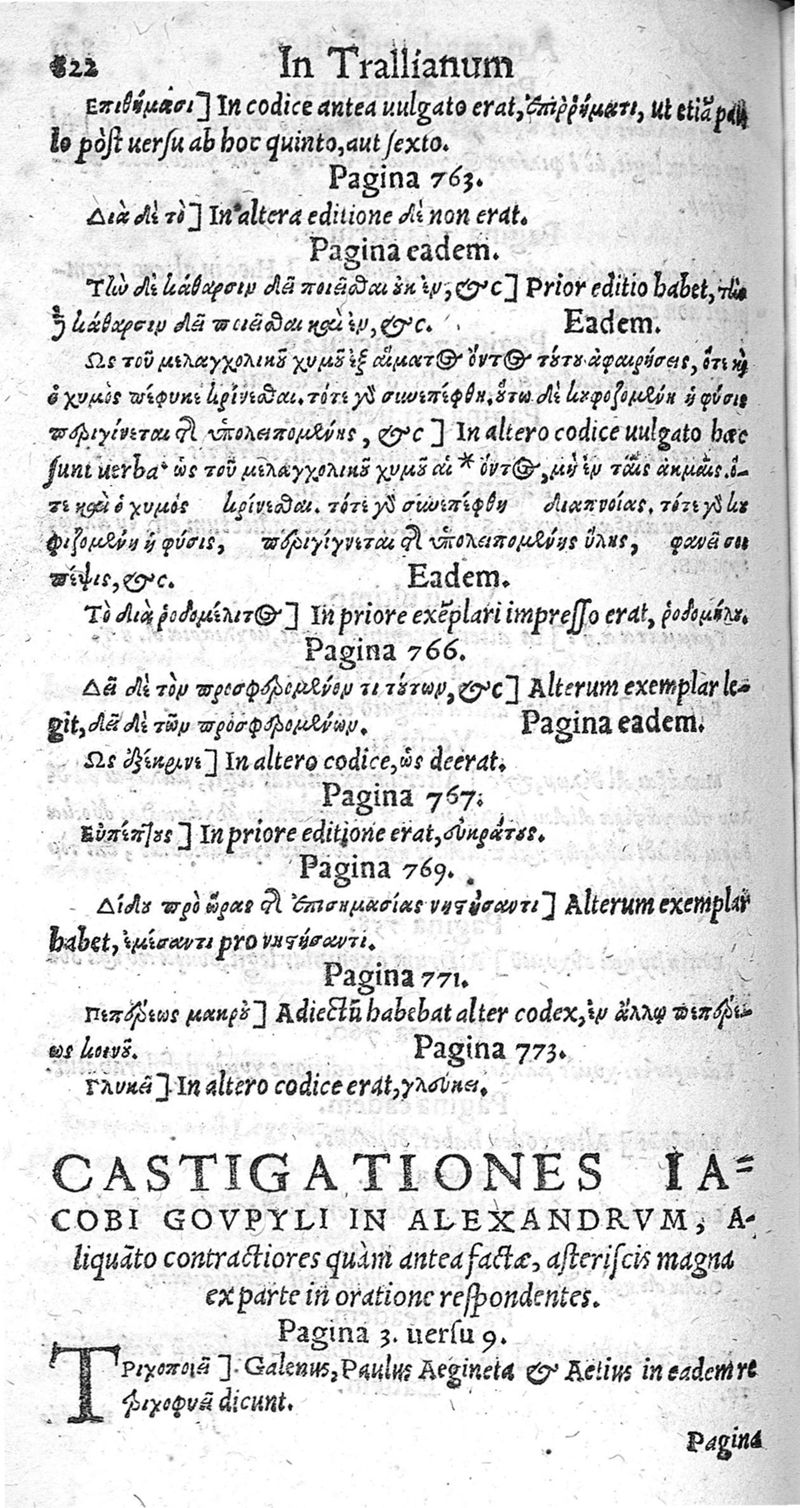 822 In Trallianum
Επιθύμασι] In codice antea uulgato erat, ἐπιῤῥύματι, ut etiā pau
lo pòst uersu ab hoc quinto, aut sexto.
Pagina 763.
Διὰ δὲ τὸ] In altera editione δὲ non erat.
Pagina eadem.
Τὼ δὲ κάθαρσιν δεῖ ποιεῖσθαι ἐκ ἐν, &c] Prior editio habet, τὼ
δὲ κάθαρσιν δεῖ ποιεῖσθαι καὶ ἐν, &c. Eadem.
Ως τοῦ μελαγχολικοῦ χυμοῦ ἐξ αἵματος ὄντος τούτου ἀφαιρήσεις, ὅτε καὶ
ὁ χυμὸς πέφυκε κρίνεσθαι. τότε γὸ συνεπέφθη. οὕτω δὲ κουφοζομένη ἡ φύσις
περιγίνεται τῆς ὑπολειπομένης, &c] In altero codice uulgato hæc
sunt uerba· ὡς τοῦ μελαγχολικοῦ χυμοῦ αἱ * ὄντος, μὴ ἐν ταῖς ἀκμαῖς. ὅ-
τε καὶ ὁ χυμὸς κρίνεσθαι. τότε γὸ συνεπέφθη διαπνοίας. τότε γὸ κου
φιζομένη ἡ φύσις, περιγίγνεται τῆς ὑπολειπομένης ὕλης, φανεῖσα
πέψις, &c. Eadem.
Τὸ διὰ ῥοδομέλιτος] In priore exēplari impresso erat, ῥοδομήλου.
Pagina 766.
Δεῖ δὲ τὸν προσφερομένον τι τούτων, &c] Alterum exemplar le-
git, δεῖ δὲ τῶν προσφερομένων. Pagina eadem.
Ως ἐξέκρινε] In altero codice, ὡς deerat.
Pagina 767.
Εὐπέπτους] In priore editione erat, εὐκράτους.
Pagina 769.
Δίδου πρὸ ὥρας τῆς ἐπισημασίας νηστεύσαντι] Alterum exemplar
habet, ἐμέσαντι pro νηστεύσαντι.
Pagina 771.
Πεπέρεως μακροῦ] Adiectū habebat alter codex, ἐν ἄλλῳ πεπέρε-
ως κοινοῦ. Pagina 773.
Γλυκεῖ] In altero codice erat, γλεύκει.
CASTIGATIONES IA=
COBI GOVPYLI IN ALEXANDRVM, A-
liquāto contractiores quàm antea factæ, asteriscis magna
ex parte in oratione respondentes.
Pagina 3. uersu 9.
ΤΡιχοποιεῖ] Galenus, Paulus Aegineta & Aetius in eadem re
τριχοφυεῖ dicunt.
Pagina